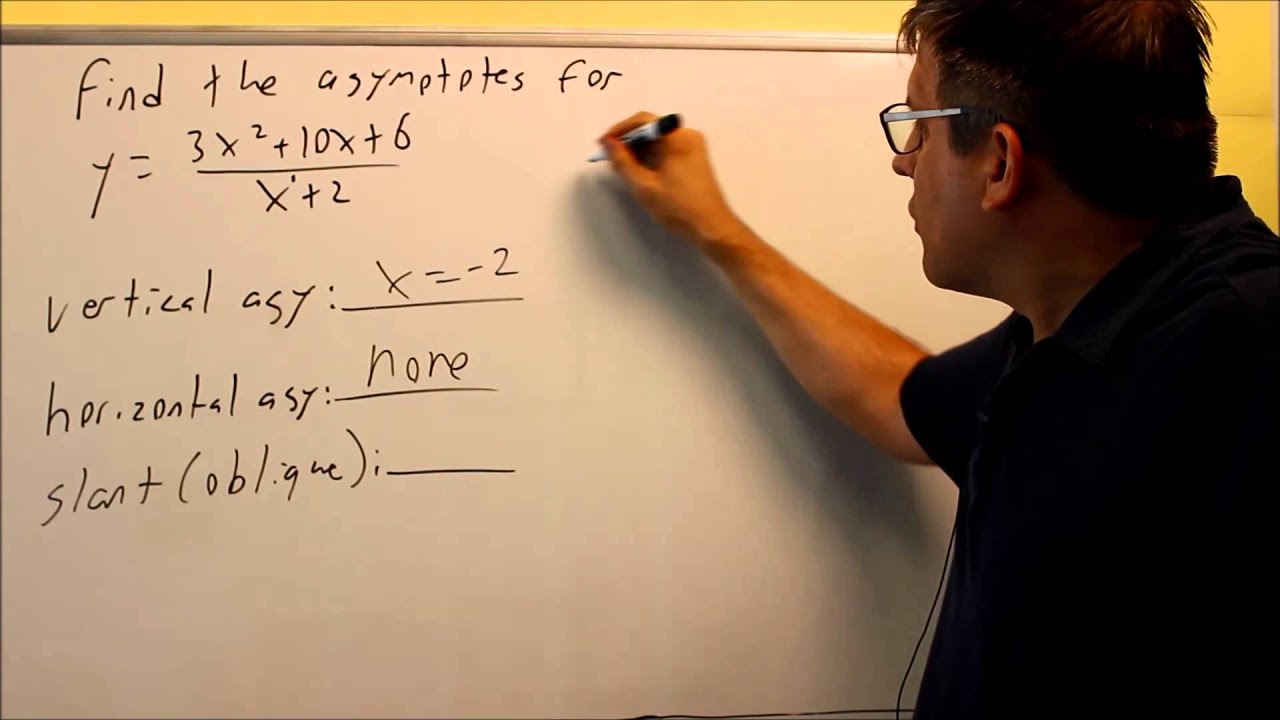 find the asymptotes for
y = 3x²+10x+6
x'+2
vertical asy: x=-2
horizontal asy: none
slant (oblique):